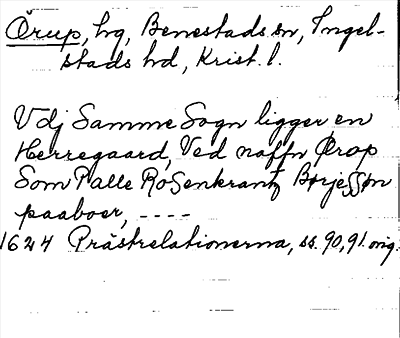 Örup, hg, Benestads sn, Ingel-
stads hd, Krist. l.
Vdj Samme Sogn ligger en
Herregaard, Ved naffn Ørop
Som Palle Rosenkrantz Børjessøn
paaboer, ----
1624 Prästrelationerna, ss. 90, 91. orig.